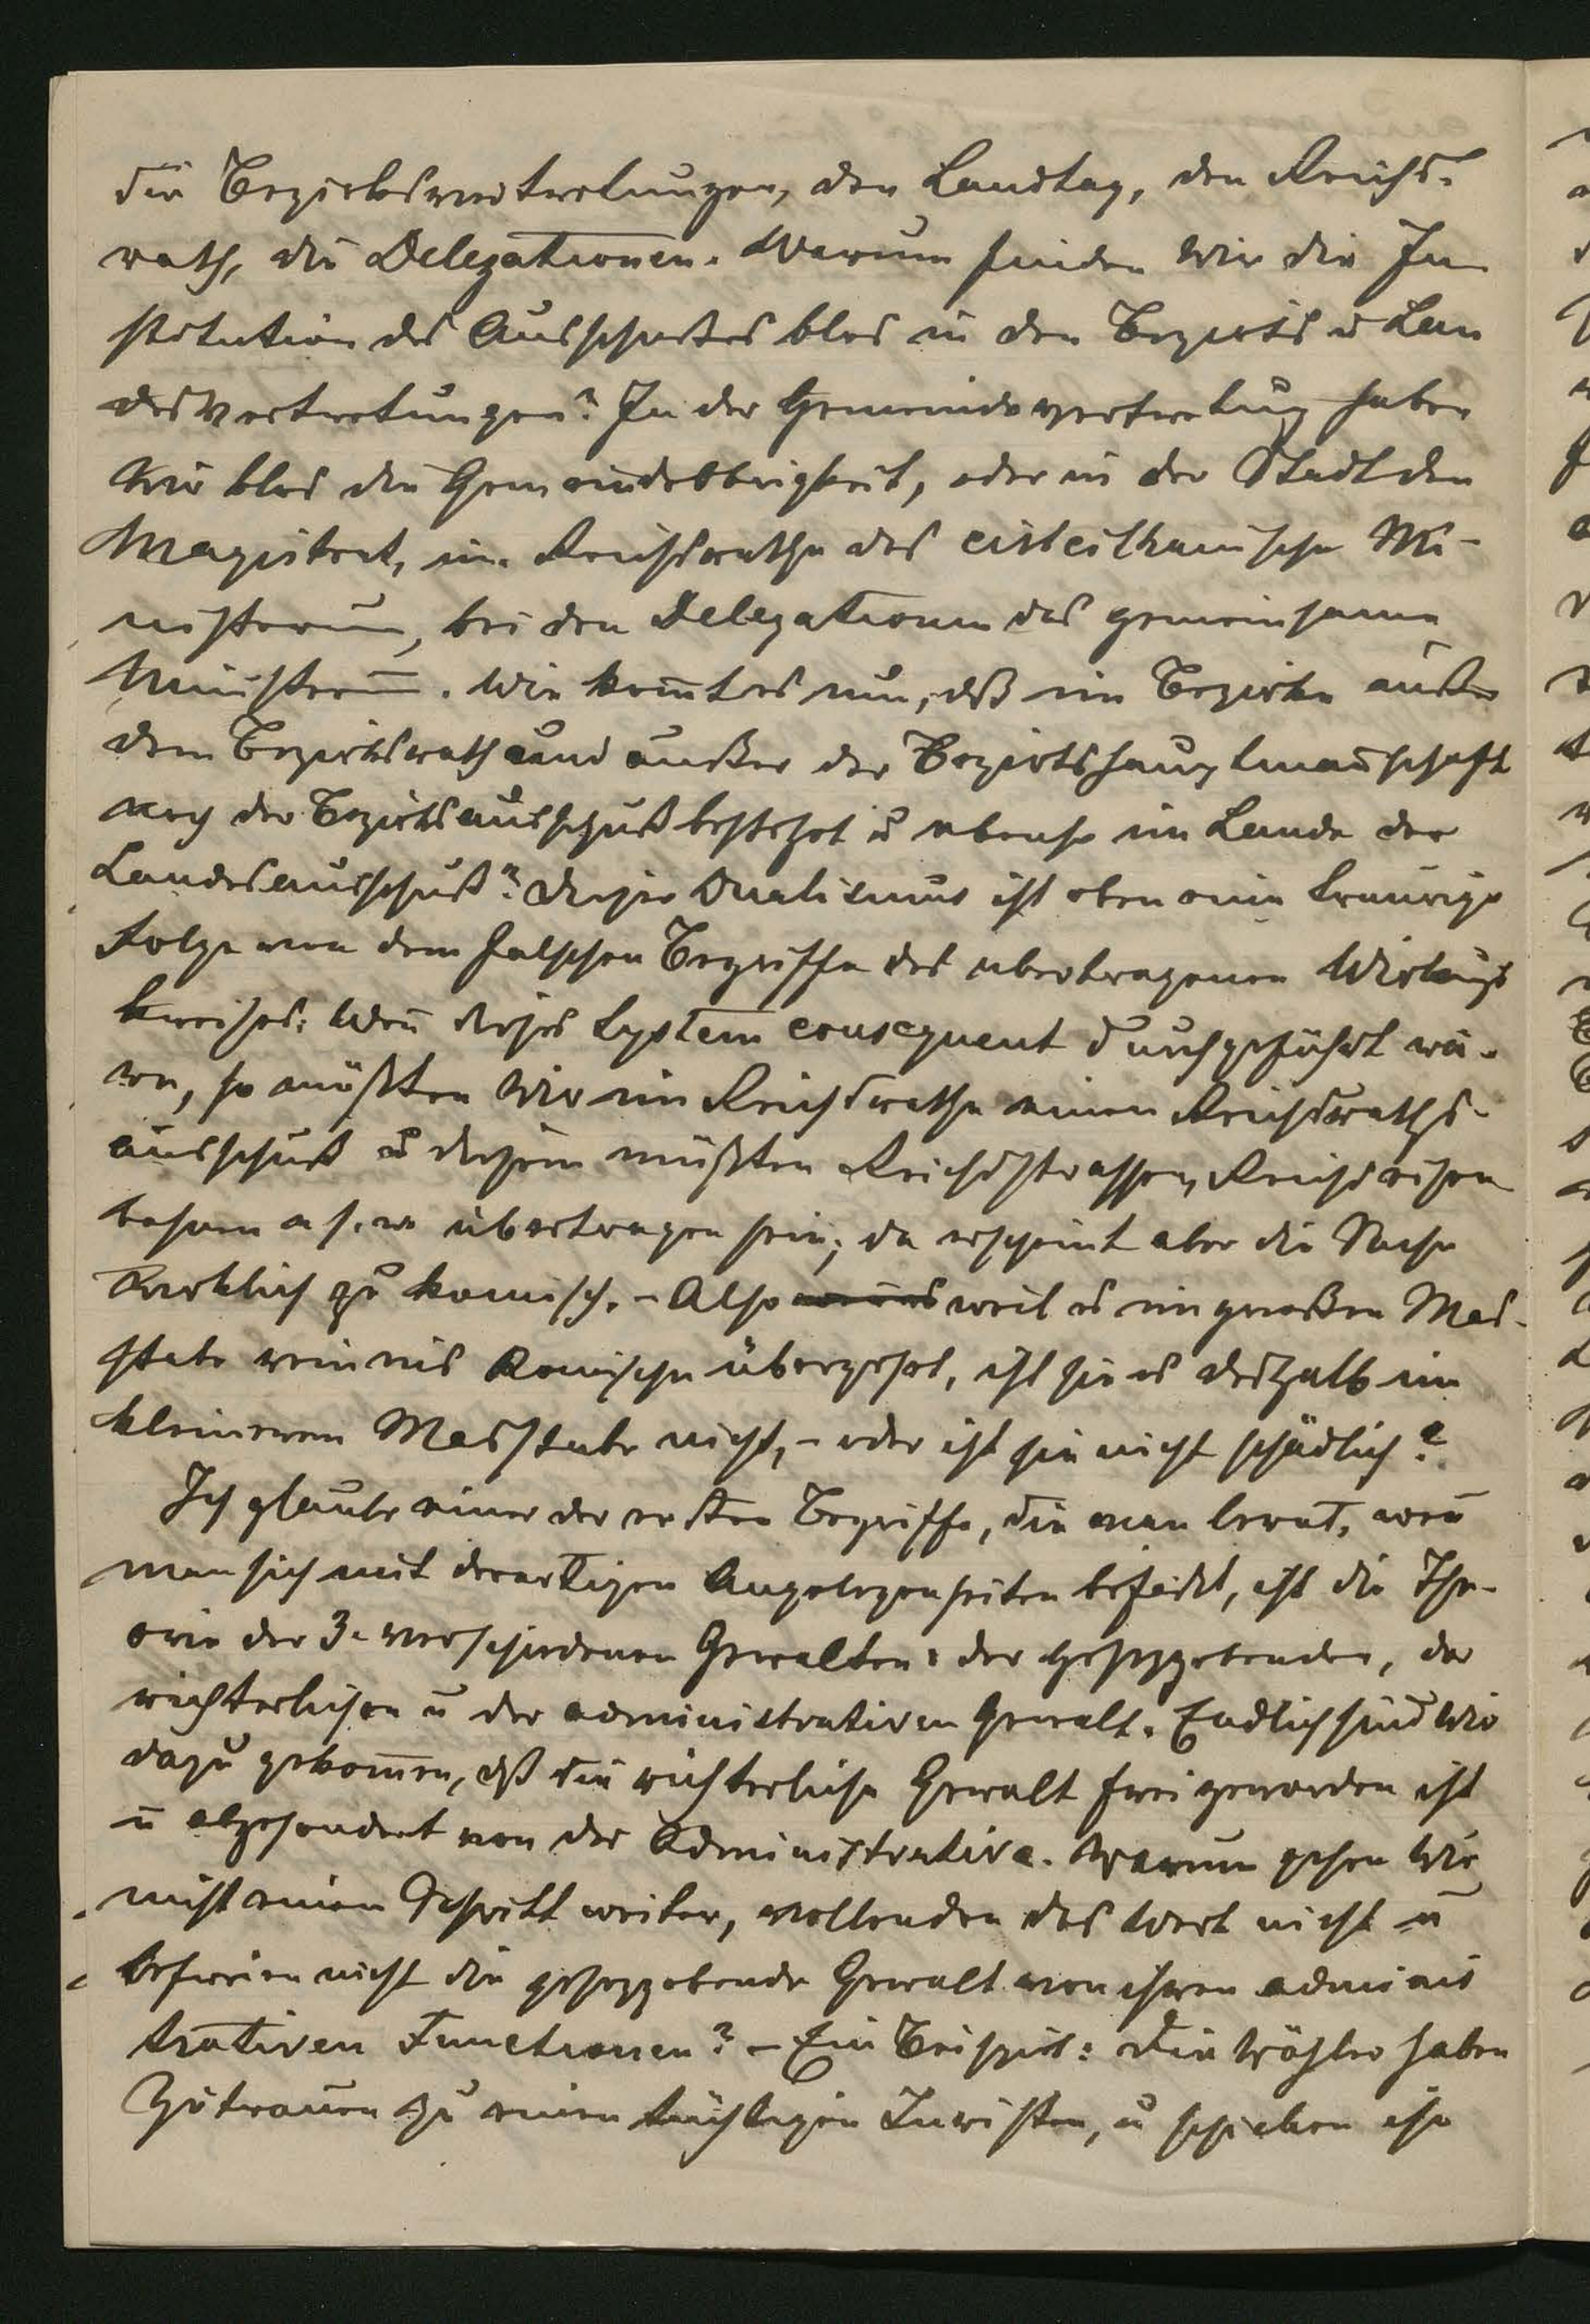 die Bezirksvertretungen, den Landtag, den Reichs-
rath, die Delegationen. Warum finden wir die In
stitution des Ausschußes blos in den Bezirks u Lan
desvertretungen? In der Gemeindevertretung haben
wir blos die Gemeindeobrigkeit, oder in der Stadt den
Magistrat, im Reichsrathe das cisleithanische Mi-
nisterium, bei den Delegationen das gemeinsame
Ministerium. Wie kommt es nun, daß im Bezirke außer
dem Bezirksrath und außer der Bezirkshauptmanschaft
noch der Bezirksausschuß besteht u ebenso im Lande der
Landesausschuß? Dieser Dualismus ist eben eine traurige
Folge von dem falschen Begriffe des übertragenen Wirkungs
kreises: Wenn dieses System consequent durchgeführt wä-
re, so müßten wir im Reichsrathe einen Reichsraths-
ausschuß u diesem müßten Reichsstrassen, Reichseisen
bahnen u. s. w übertragen sein; da erscheint aber die Sache
wirklich zu komisch. – Also weil es im großen Mas-
stabe rein ins Komische übergeht, ist sie es deshalb im
kleineren Masstabe nicht, – oder ist sie nicht schädlich?
Ich glaube einer der ersten Begriffe, die man lernt, wenn
man sich mit derartigen Angelegenheiten befaßt, ist die The-
orie der 3. verschiedenen Gewalten: der gesetzgebenden, der
richterlichen u der administrativen Gewalt. Endlich sind wir
dazu gekommen, daß die richterliche Gewalt frei geworden ist
u abgesondert von der Administrative. Warum gehen wir
nicht einen Schritt weiter, vollenden das Werk nicht u
befreien nicht die gesetzgebende Gewalt von ihren adminis
trativen Functionen? – Ein Beispiel: Die Wähler haben
Zutrauen zu einem tüchtigen Juristen, u schicken ihn